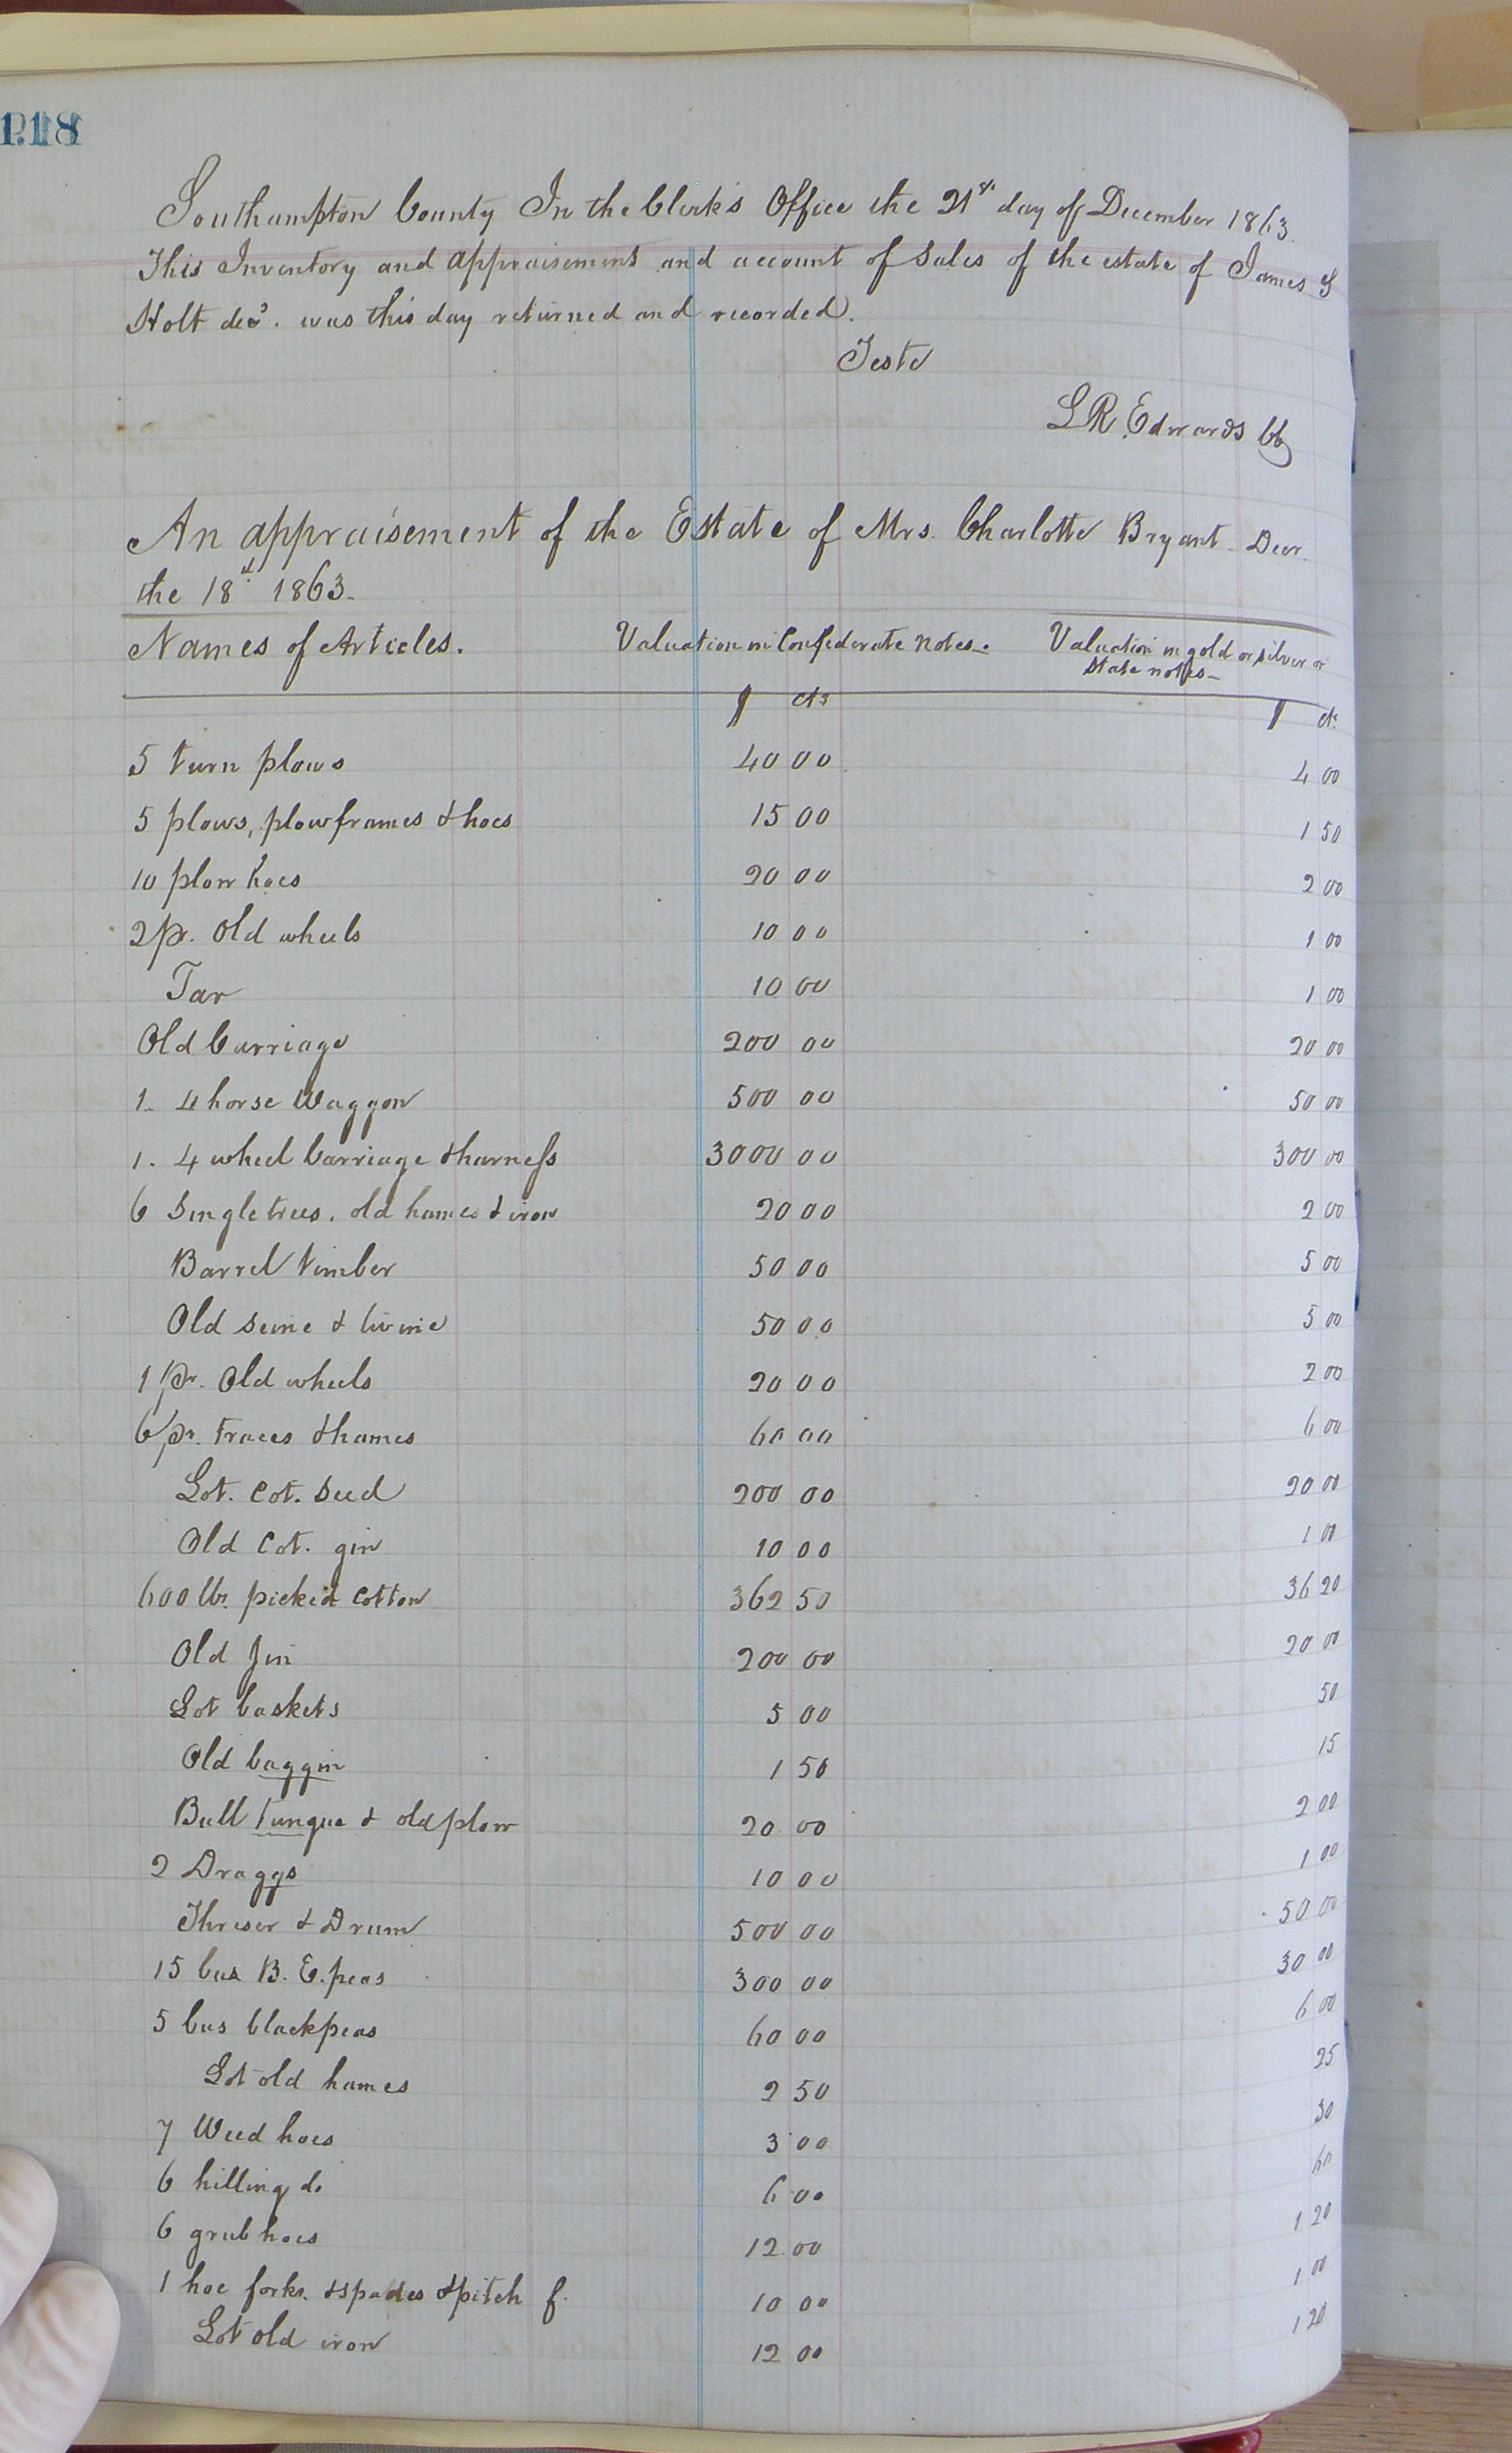 118
Southampton County In the Clerk's Office the 21st day of December 1863.
This Inventory and appraisement and account of Sales of the estate of James S
Holt decd. was this day returned and recorded.
Teste
L R Edwards Clk
An appraisement of the Estate of Mrs. Charlotte Bryant Decr.
the 18th 1863.
Names of Articles. Valuation in Confederate notes. Valuation in gold or silver or
State notes
$ cts $ cts
5 turn plows 40 00 4 00
5 plows, plowframes & hoes 15 00 1 50
10 plow hoes 20 00 2 00
2 pr. Old wheels 10 00 1 00
Tar 10 00 1 00
Old Carriage 200 00 20 00
1. 4 horse Waggon 500 00 50 00
1. 4 wheel Carriage & harness 3000 00 300 00
6 Singletrees, old hames & iron 20 00 2 00
Barrel timber 50 00 5 00
Old seine & twine 50 00 5 00
1 pr. Old wheels 20 00 2 00
6 pr. traces & hames 60 00 6 00
Lot. Cot. Seed 200 00 20 00
Old Cot. gin 10 00 1 00
600 lbs. picked Cotton 362 50 36 20
Old Jin 200 00 20 00
Lot baskets 5 00 50
Old baggin 1 50 15
Bull tungue & old plow 20 00 2 00
2 Draggs 10 00 1 00
Threser & Drum 500 00 50 00
15 bus B. E. peas 300 00 30 00
5 bus blackpeas 60 00 6 00
Lot old hames 2 50 25
7 Weed hoes 3 00 30
6 hilling do 6 00 60
6 grub hoes 12 00 1 20
1 hoe forks. & spades & pitch f. 10 00 1 00
Lot old iron 12 00 1 20